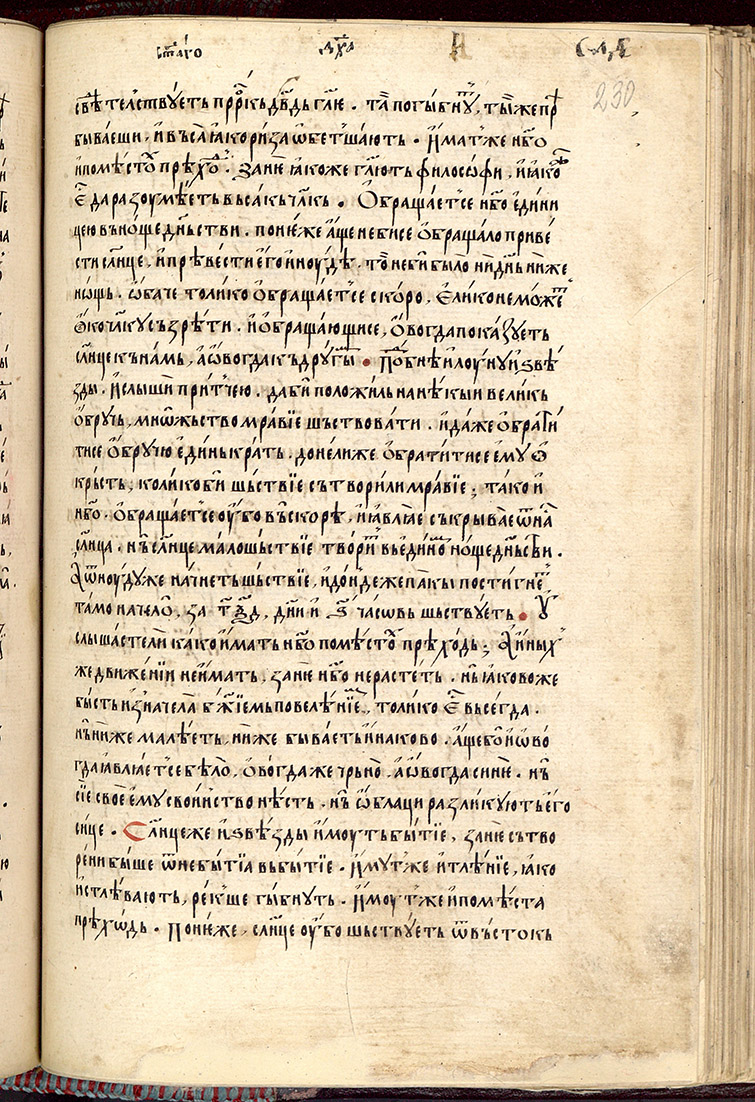 ст҃аго мцⷭ҇а И сл҃г
230
свѣ́тел̾ствꙋеть прⷪ҇рⷪ҇кь дв҃дь гл҃ѥ . та̏ погы́бнꙋⷮ , ты́ же прⷣѣ
быва́еши , и҆ в̾са̀ ꙗ҆ко ри́за ѡ҆бет̾ша́ють . И҆мат̾же нб҃о
и҆ по мѣ́стоⷯ прѣ́хоⷣ . зане̏ ꙗ҆коже гл҃ють филосѡ́фи , и҆ ꙗ҆коⷤ
є҆ⷭ҇ да разꙋмѣ́еть в̾са́кь чл҃кь . Ѻ҆браща́ет̾се нб҃о е҆ди́ни
цею в̾ нощеде́н̾стви . понѥ́же а҆́ще не би се ѻ҆браща́ло приве́
сти сл҃нце , и҆ прѣве́сти е҆го и҆ноу́дѣ , то̏ не би̏ было ни дн҃ь ни́же
нощь . ѻ҆ба́че толи́ко ѻ҆браща́ет̾се ско́ро , е҆ли́ко не мо́жеⷮ
ѻ҆ко чл҃кꙋ съзрѣ́ти . и҆ ѻ҆браща́ющисе , ѻ҆вогда пока́зꙋеть
сл҃нце къ на́мь , а҆ ѻ҆вогда къ дрꙋгы́иⷨ • Поⷣбнѣ и҆ лоу́нꙋ и҆ ѕвѣ́
зды . и҆ слы́ши при́т̾чею . да би̏ положи́ль на нѣ́кыи вели́кь
ѻ҆брꙋ́чь , мнѡ́жьство мра́вїе ше́ствовати . и҆ да́же ѻ҆брати́
тисе ѻ҆брꙋ́чю е҆ди́нь кра́ть . до́нелиже ѻ҆брати́тисе е҆мꙋ ѻ҆
кр҃сть , коли́ко би̏ ше́ствїе сътвори́ли мра́вїе ; та́ко и҆
нб҃о . ѻ҆браща́ет̾се оу҆́бо въско́рѣ , и҆ ꙗ҆вла́ѥ съкры́ваѥ ѿ на́ⷭ҇
сл҃нца . нъ̏ сл҃нце ма́ло ше́ствїе твори́ⷮ въ е҆ди́ноⷨ но́щеде́н̾стви .
А҆ ѿноу́дꙋже на́чнеть ше́ствїе , и҆ до́ндеже па́кы пости́гнеⷮ
та́мо на че́ло , за т҃ѯ҃д , дн҃и и҆ ѕ҃ часо́вь ше́ствꙋеть • У҆
слы́шасте ли ка́ко и҆мать нб҃о по мѣ́стоⷯ прѣ́ходь ; А҆ и҆ны́хⷾ
же движе́нїи не и҆мать , зане̏ нб҃о не расте́ть . нъ̏ ꙗ҆ковоже
бы́сть и҆з̾нача́ла б҃жїемь повелѣ́нїеⷨ , толи́ко є҆ⷭ҇ в̾сегда .
нъ̏ ни́же мале́еть , ни́же бы́ваеть и҆на́ково . а҆́ще бо̏ и҆ ѻ҆во
гда ꙗ҆вла́ет̾се бѣ́ло , ѻ҆вогда же чръно̏ , а҆ ѻ҆вогда си́не . нъ̏
сїе̏ свое̏ е҆мꙋ сво́иство нѣ́сть . нъ̏ ѡ҆́блаци разли́кꙋють е҆го
си́це . Сл҃нце же и҆ ѕвѣ́зды и҆́моуть бы́тїе , зане̏ сътво
ре́ни бы́ше ѿ не бы́тїа въ бы́тїе . И҆́мꙋт̾же и҆ тлѣ́нїе , ꙗ҆ко
и҆стлѣ́вають , ре́к̾ше гы́бнꙋть . И҆́моут̾же и҆ по мѣ́ста
прѣ́хѡдь . Понѥ́же , сл҃нце оу҆́бо ше́ствꙋеть ѿ въсто́кь